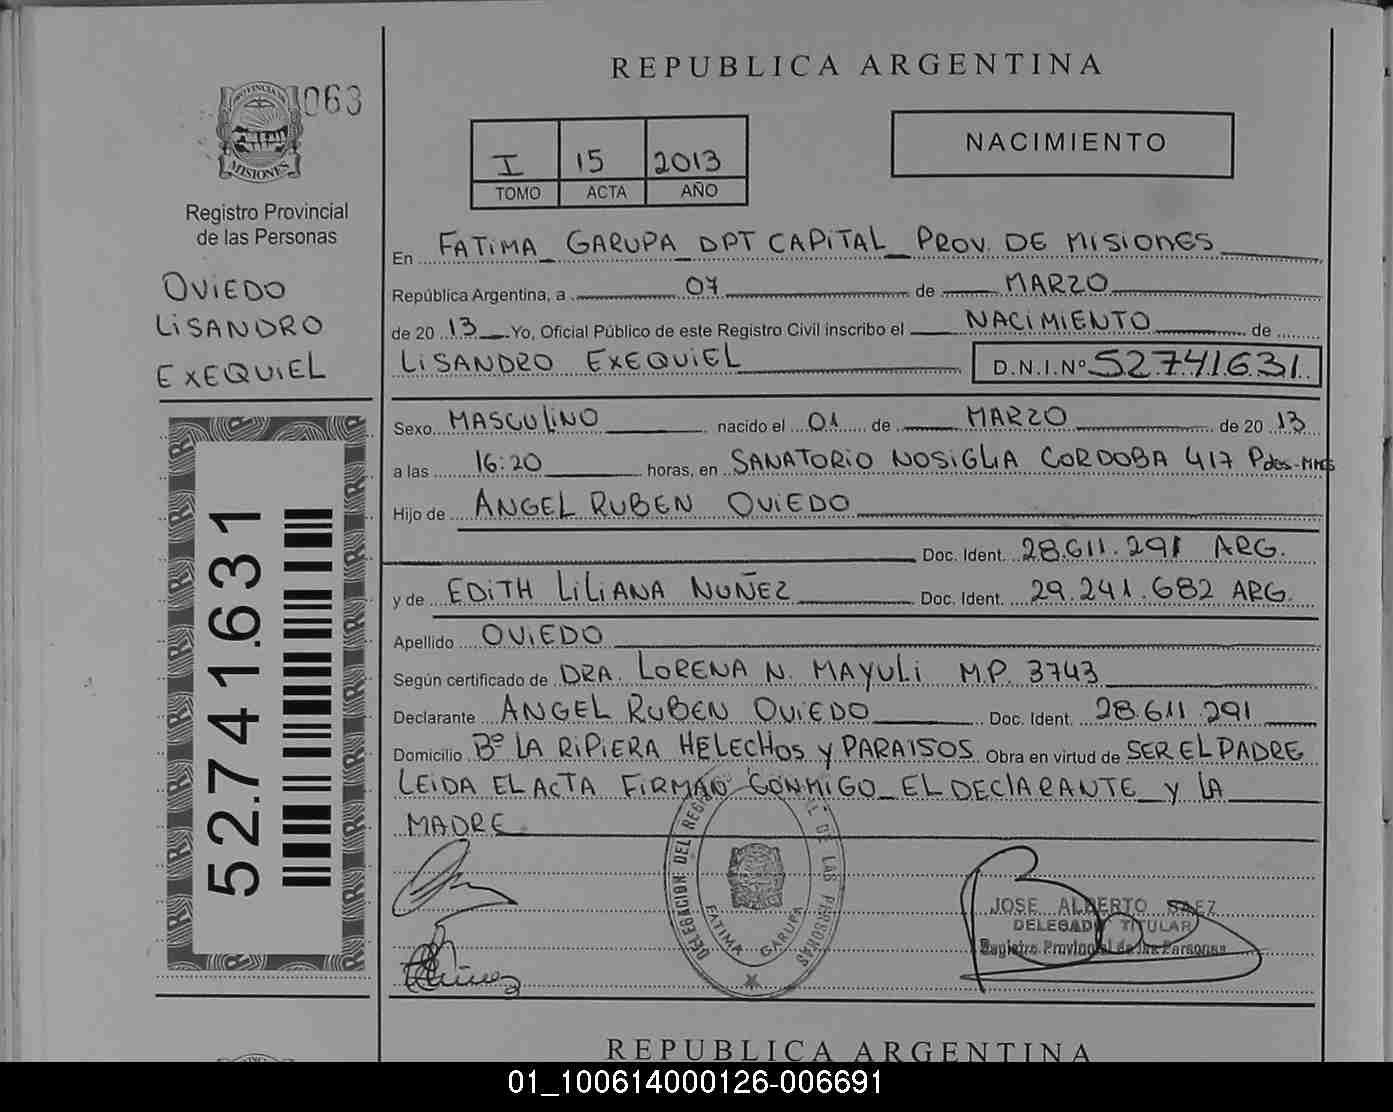 REPUBLICA ARGENTINA
063
PROVINCIA DE
MISIONES
Registro Provincial
de las Personas
OVIEDO
LISANDRO
EXEQUIEL
52.741.631
I 15 2013
TOMO ACTA AÑO
NACIMIENTO
En FATIMA GARUPA DPT CAPITAL PROV. DE MISIONES
República Argentina, a 07 de MARZO
de 20 13 Yo, Oficial Público de este Registro Civil inscribo el NACIMIENTO de
LISANDRO EXEQUIEL D.N.I.Nº 52.741.631
Sexo MASCULINO nacido el 01 de MARZO de 20 13
a las 16:20 horas, en SANATORIO NOSIGLIA CORDOBA 417 Pdas-Mnes
Hijo de ANGEL RUBEN OVIEDO
Doc. Ident. 28.611.291 ARG.
y de EDITH LILIANA NUÑEZ Doc. Ident. 29.241.682 ARG.
Apellido OVIEDO
Según certificado de DRA. LORENA N. MAYULI M.P. 3743
Declarante ANGEL RUBEN OVIEDO Doc. Ident. 28.611.291
Domicilio Bº LA RIPIERA HELECHOS y PARAISOS Obra en virtud de SER EL PADRE
LEIDA EL ACTA FIRMAN CONMIGO EL DECLARANTE y LA
MADRE
DELEGACION DEL REG DE LAS PERSONAS
FATIMA GARUPA
JOSE ALBERTO SAEZ
DELEGADO TITULAR
Registro Provincial de las Personas
REPUBLICA ARGENTINA
01_100614000126-006691